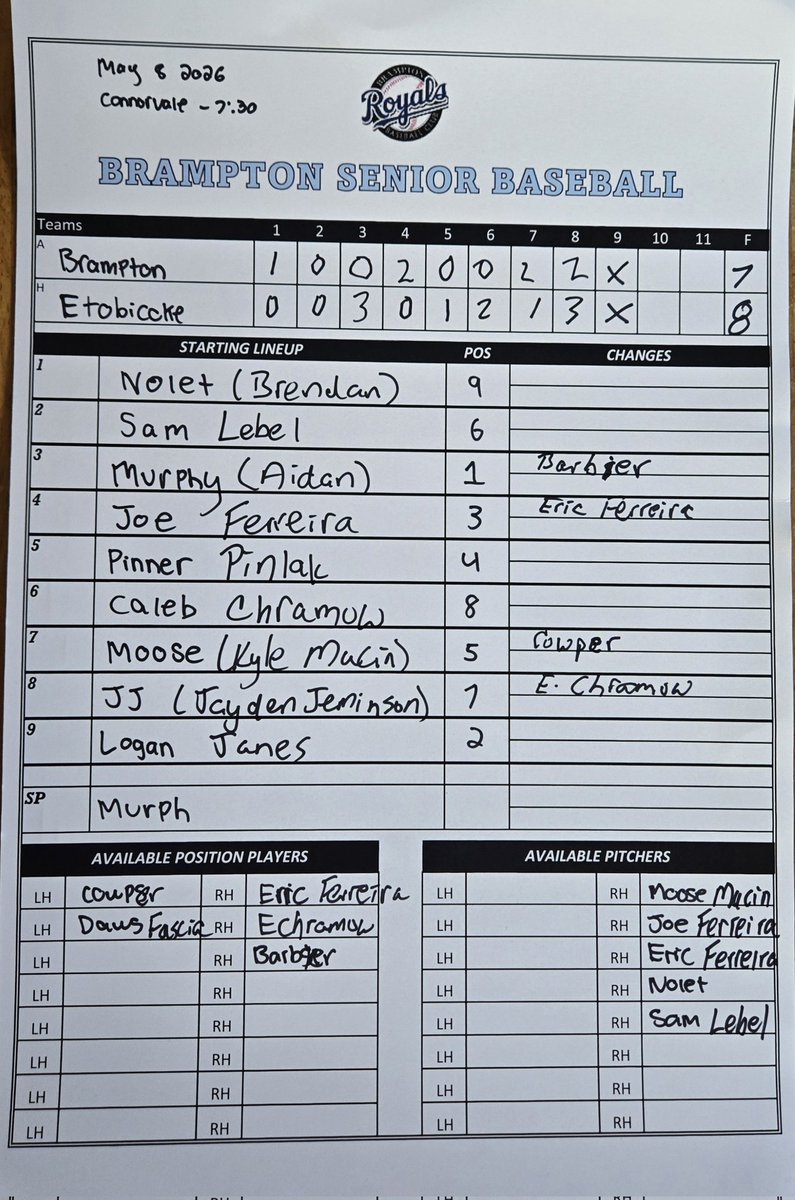 May 8 2026
Connorvale - 7:30
BRAMPTON
Royals
BASEBALL CLUB
BRAMPTON SENIOR BASEBALL
Teams 1 2 3 4 5 6 7 8 9 10 11 F
A Brampton 1 0 0 2 0 0 2 2 X 7
H Etobiccke 0 0 3 0 1 2 1 3 X 8
STARTING LINEUP POS CHANGES
1 Nolet (Brendan) 9
2 Sam Lebel 6
3 Murphy (Aidan) 1 Barbier
4 Joe Ferreira 3 Eric Ferreira
5 Pinner Pinlak 4
6 Caleb Chramow 8
7 Moose (Kyle Macin) 5 Cowper
8 JJ (Jayden Jeminson) 7 E. Chramow
9 Logan Janes 2
SP Murph
AVAILABLE POSITION PLAYERS AVAILABLE PITCHERS
LH Cowper RH Eric Ferreira LH RH Moose Macin
LH Daws Fascia RH Echramow LH RH Joe Ferreira
LH RH Barbier LH RH Eric Ferreira
LH RH LH RH Nolet
LH RH LH RH Sam Lebel
LH RH LH RH
LH RH LH RH
LH RH LH RH